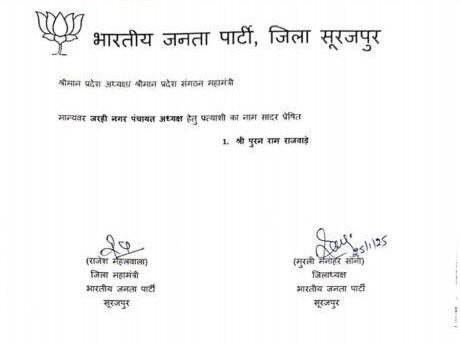 भारतीय जनता पार्टी, जिला सूरजपुर
श्रीमान प्रदेश अध्यक्ष/ श्रीमान प्रदेश संगठन महामंत्री
मान्यवर जरही नगर पंचायत अध्यक्ष हेतु प्रत्याशी का नाम सादर प्रेषित
1. श्री पुरन राम राजवाड़े
25/1/25
(राजेश महलवाला) (मुरली मनोहर सोनी)
जिला महामंत्री जिलाध्यक्ष
भारतीय जनता पार्टी भारतीय जनता पार्टी
सूरजपुर सूरजपुर